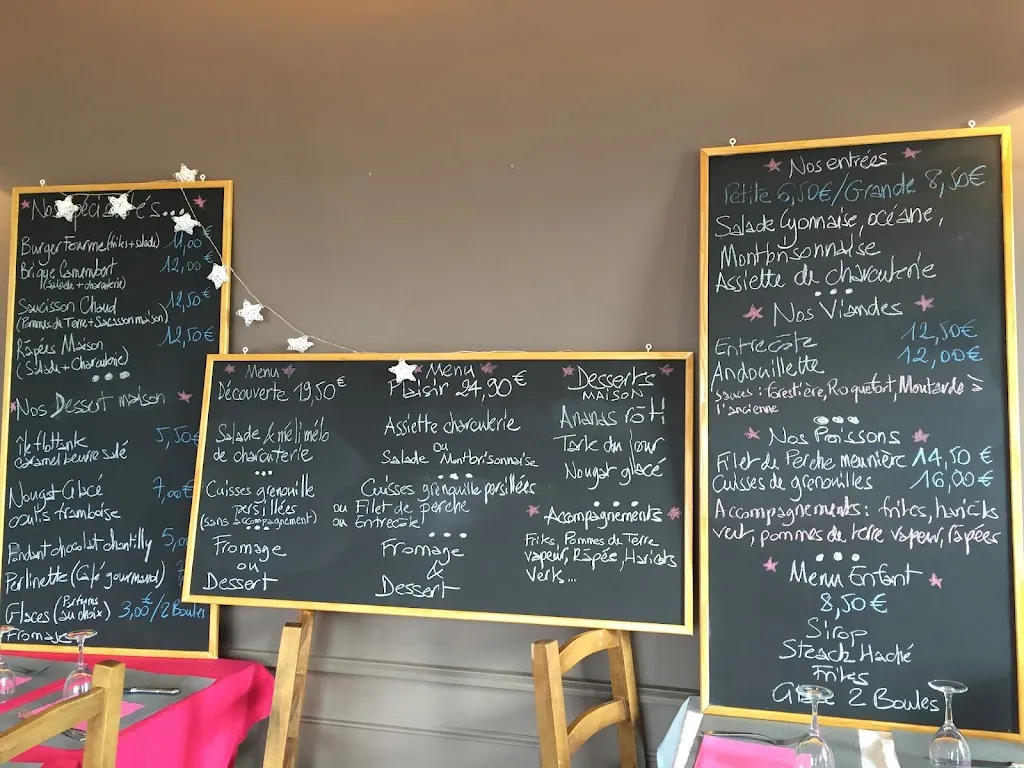 Nos
Burger Fourme (frites + salade) 11,00
Brique Camembert 12,00
(Salade + charcuterie)
Saucisson Chaud 12,50
(Pommes de Terre + Saucisson maison)
Râpées Maison 12,50€
(Salade + Charcuterie)
Nos Dessert maison
île flottante 5,50€
caramel beurre salé
Nougat Glacé 7,00€
coulis framboise
Fondant chocolat chantilly 5,0
Perlinette (Café gourmand)
Glaces (Parfums au choix) 3,00€/2 Boules
Fromage
Menu
Découverte 19,50€
Salade & mélimélo
de charcuterie
Cuisses grenouille
persillées
(sans accompagnement)
Fromage
ou
Dessert
Menu
Plaisir 24,90€
Assiette charcuterie
ou
Salade Montbrisonnaise
Cuisses grenouille persillées
ou Filet de perche
ou Entrecôte
Fromage
&
Dessert
Desserts
MAISON
Ananas rôti
Tarte du jour
Nougat glacé
Accompagnements
Frites, Pommes de Terre
vapeur, Râpée, Haricots
verts...
Nos entrées
Petite 6,50€/Grande 8,50€
Salade Lyonnaise, océane,
Montbrisonnaise
Assiette de charcuterie
Nos Viandes
Entrecôte 12,50€
Andouillette 12,00€
sauces : forestière, Roquefort, Moutarde à
l'ancienne
Nos Poissons
Filet de Perche meunière 14,50€
Cuisses de grenouilles 16,00€
Accompagnements : frites, haricots
vert, pommes de terre vapeur, râpées
Menu Enfant
8,50€
Sirop
Steack Haché
Frites
2 Boules